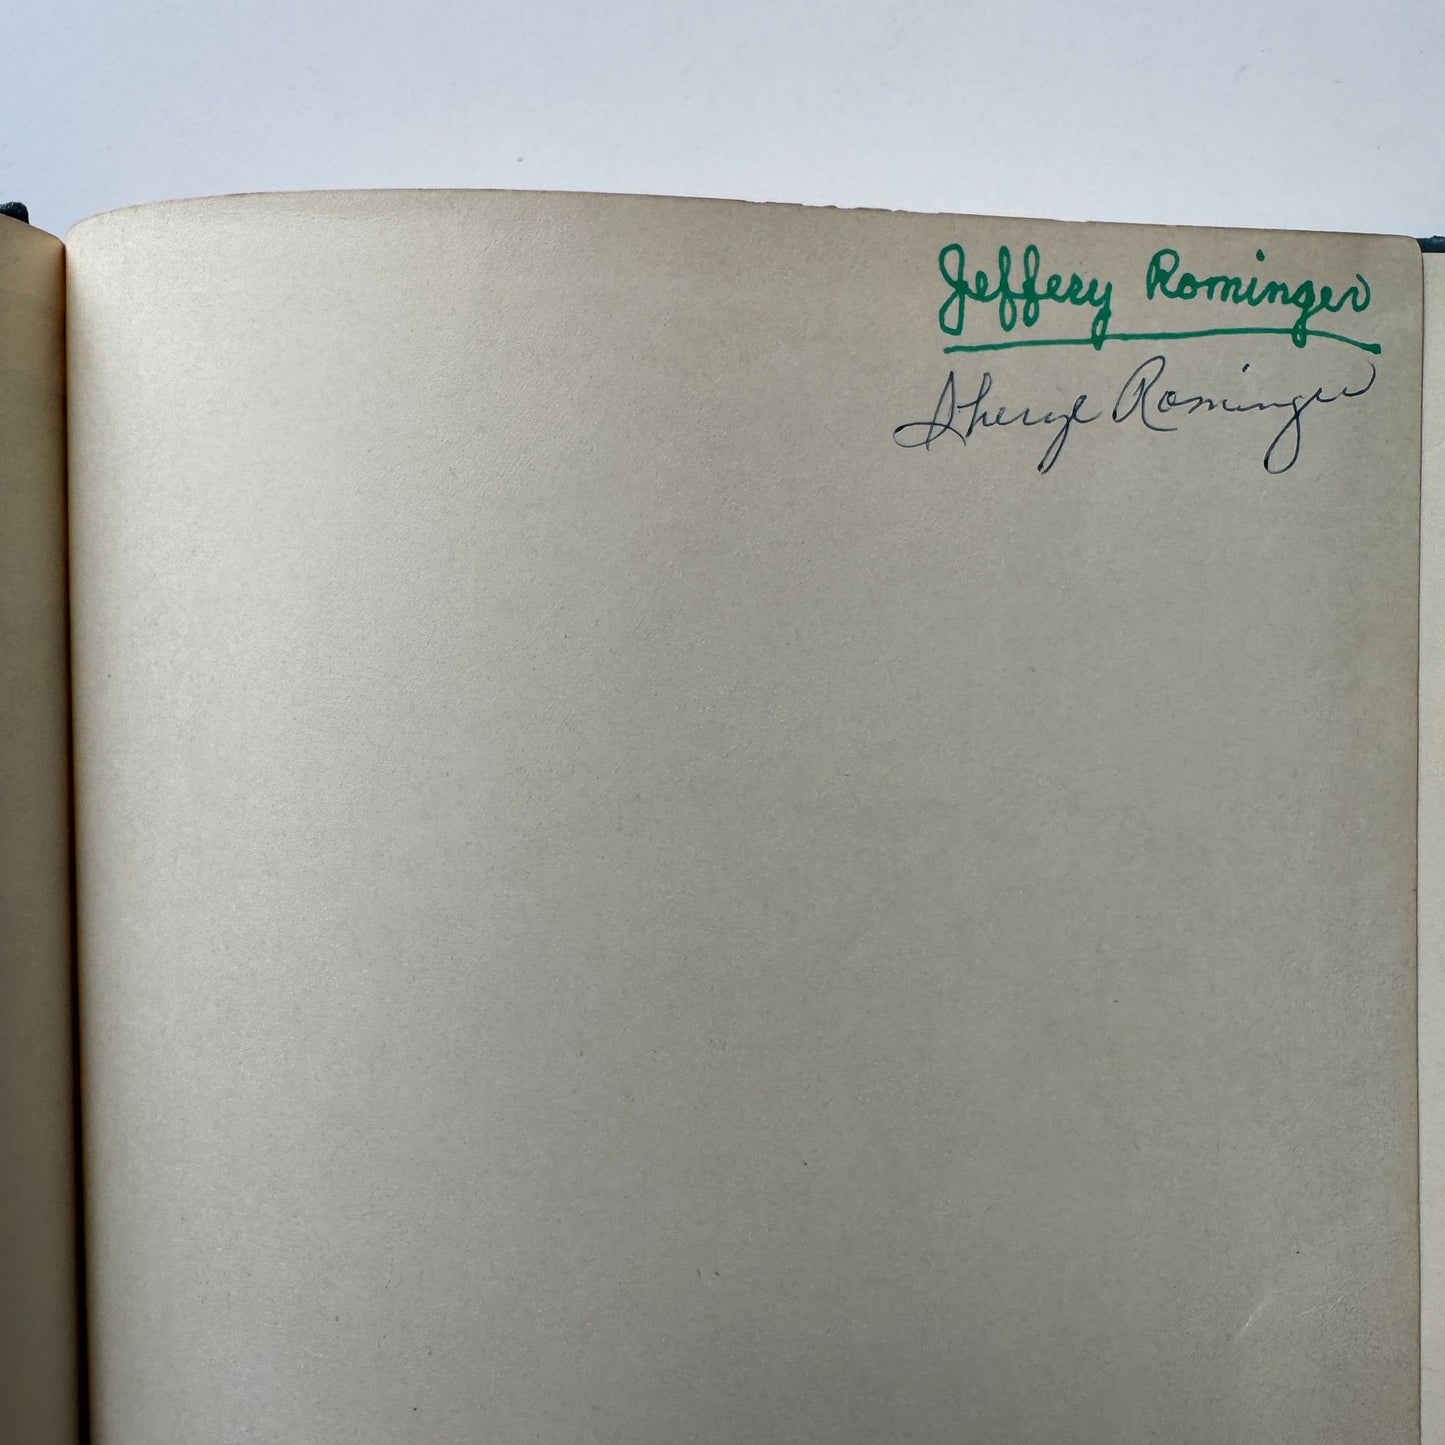 Jeffery Rominger
Sheryl Rominger